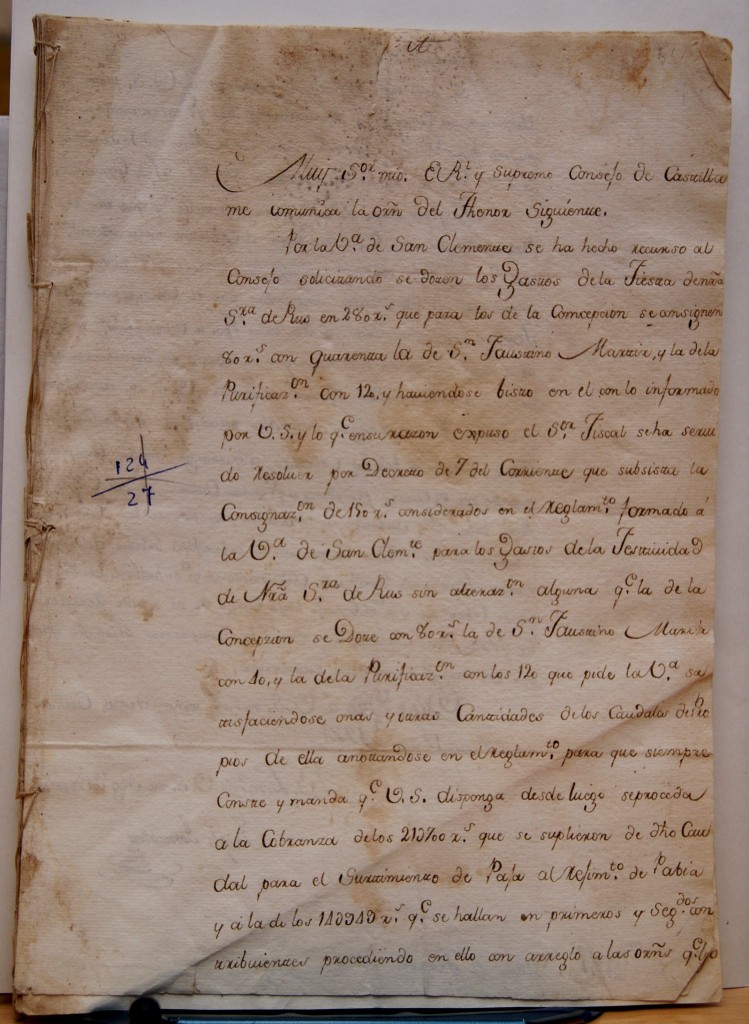 Muy S.or mio. El R.l y Supremo Consejo de Castilla
me comunica la orñ del Thenor Siguiente.
Por la V.a de San Clemente se ha hecho recurso al
Consejo solicitando se doten los Gastos de la Fiesta de nrã
S.ra de Rus en 280 r.s que para los de la Concepcion se consignen
80 r.s con quarenta la de S.n Faustino Martir, y la de la
Purificaz.on con 120, y haviendose bisto en el con lo informado
por V.S. y lo q.e en su razon expuso el S.or Fiscal se ha servi
do Resolver por Decreto de 7 del Corriente que subsista la
Consignaz.on de 150 r.s considerados en el Reglam.to formado á
la V.a de San Clem.te para los Gastos de la Festiuidad
de Nrã S.ra de Rus sin alteraz.on alguna q.e la de la
Concepzion se Dote con 80 r.s la de S.n Faustino Martir
con 40, y la de la Purificaz.on con los 120 que pide la V.a sa
tisfaciendose onas y outras Cantidades de los Caudales de Pro
pios de ella anottandose en el Reglam.to para que siempre
Conste y manda q.e V.S. disponga desde luego se proceda
a la Cobranza de los r.s que se suplieron de dho Cau
dal para el Surtimiento de Paja al Rejim.to de Pabia
y á la de los r.s q.e se hallan en primeros y Seg.dos con
tribuientes procediendo en ello con arreglo a las orñs q.e
124
27